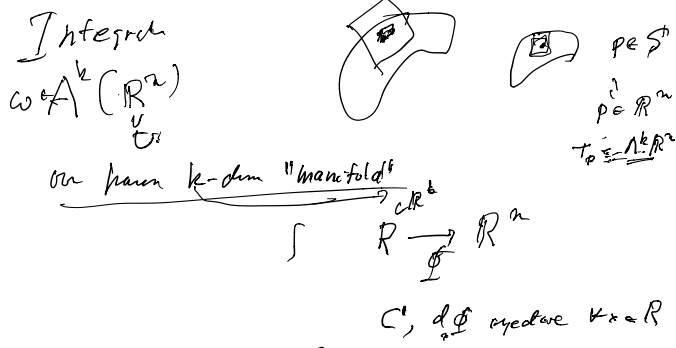 Integral
ω ∈ A^k (ℝ^n)
∪
U
p ∈ S
p ∈ ℝ^n
T_p ∈ Λ^k ℝ^n
our param k-dim "manifold"
⊂ℝ^k
∫ R → ℝ^n
Φ
C¹, d_xΦ injective ∀ x ∈ R